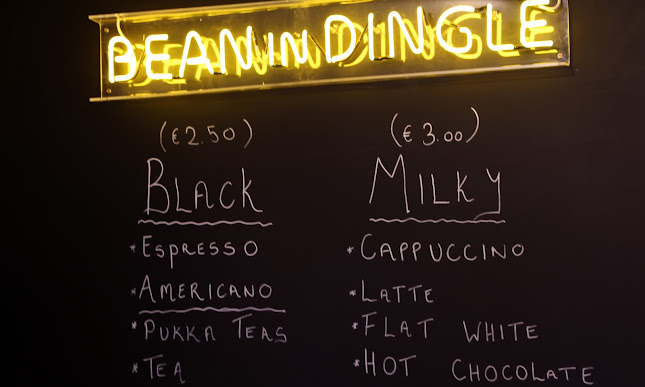 BEAN IN DINGLE
(€2.50)
BLACK
*ESPRESSO
*AMERICANO
*PUKKA TEAS
*TEA
(€3.00)
MILKY
*CAPPUCCINO
*LATTE
*FLAT WHITE
*HOT CHOCOLATE